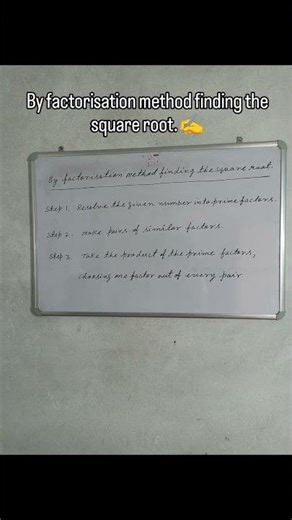 By factorisation method finding the
square root. ✍️
By factorisation method finding the square root.
Step 1. Resolve the given number into prime factors.
Step 2. Make pairs of similar factors.
Step 3. Take the product of the prime factors,
choosing one factor out of every pair